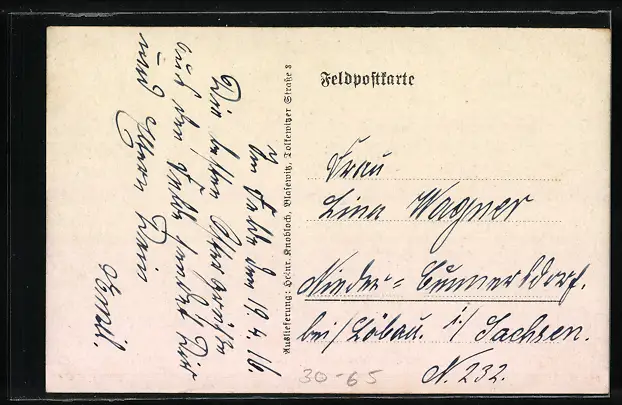 Im Felde den 19.4.16.
Die besten Ostergrüße
aus dem Felde sendet Dir
und Eltern Dein
Emil.
Auslieferung: Heinr. Knobloch, Blasewitz, Tolkewitzer Straße 3
Feldpostkarte
Frau
Lina Wagner
Nieder-Cunnersdorf.
bei/Löbau. i./Sachsen.
N. 232.
30-65